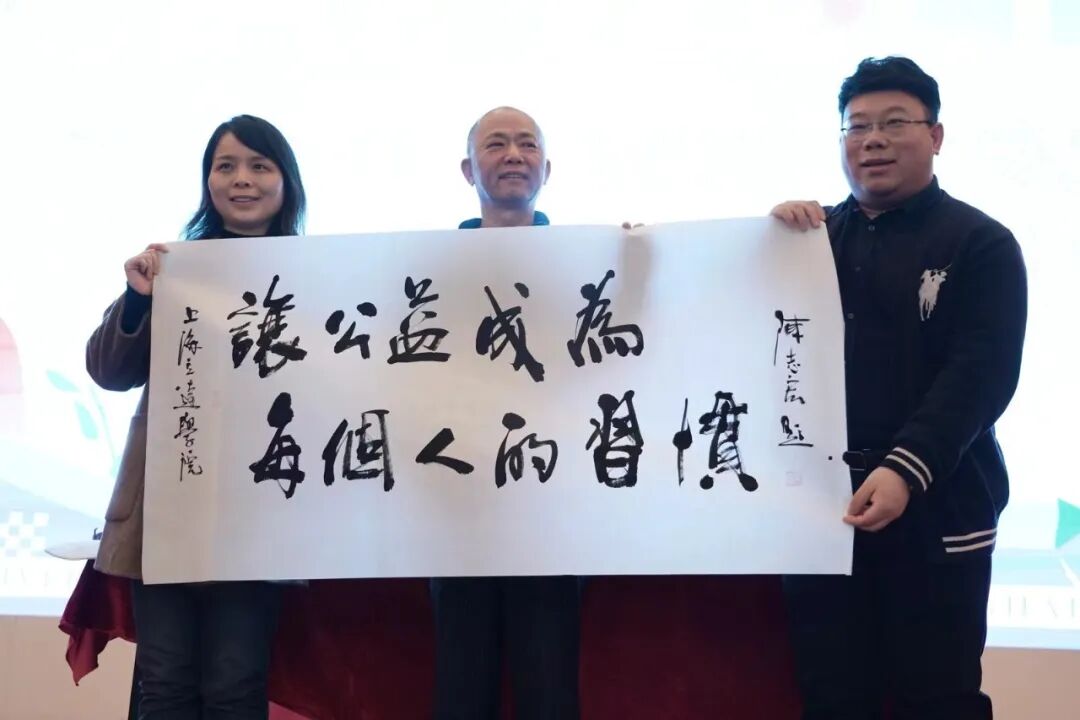 上海立達學院
讓公益成為
每個人的習慣
陳志宏題